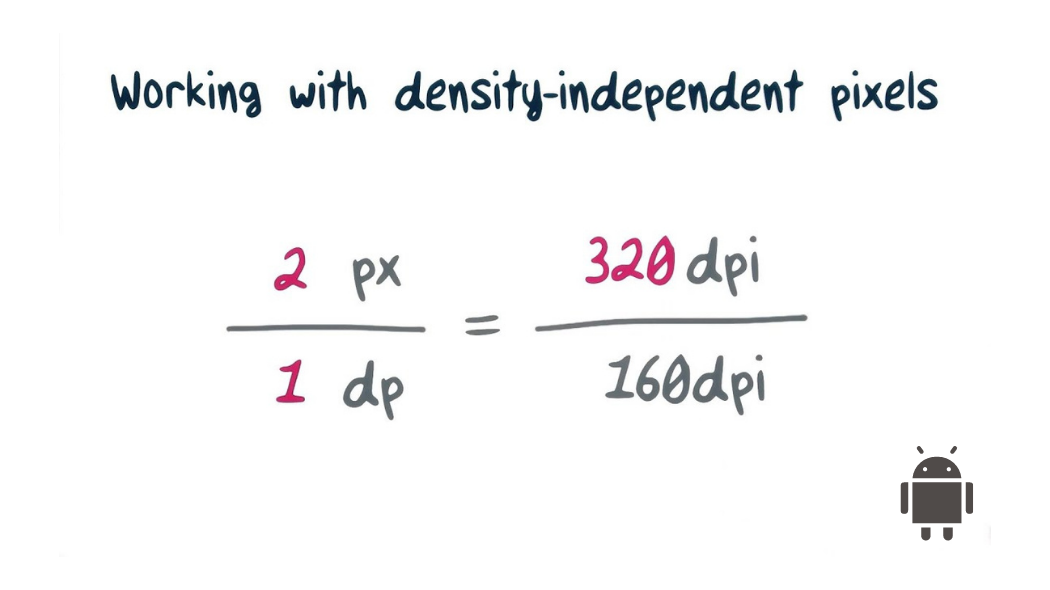 Working with density-independent pixels
2 px = 320dpi
1 dp 160dpi